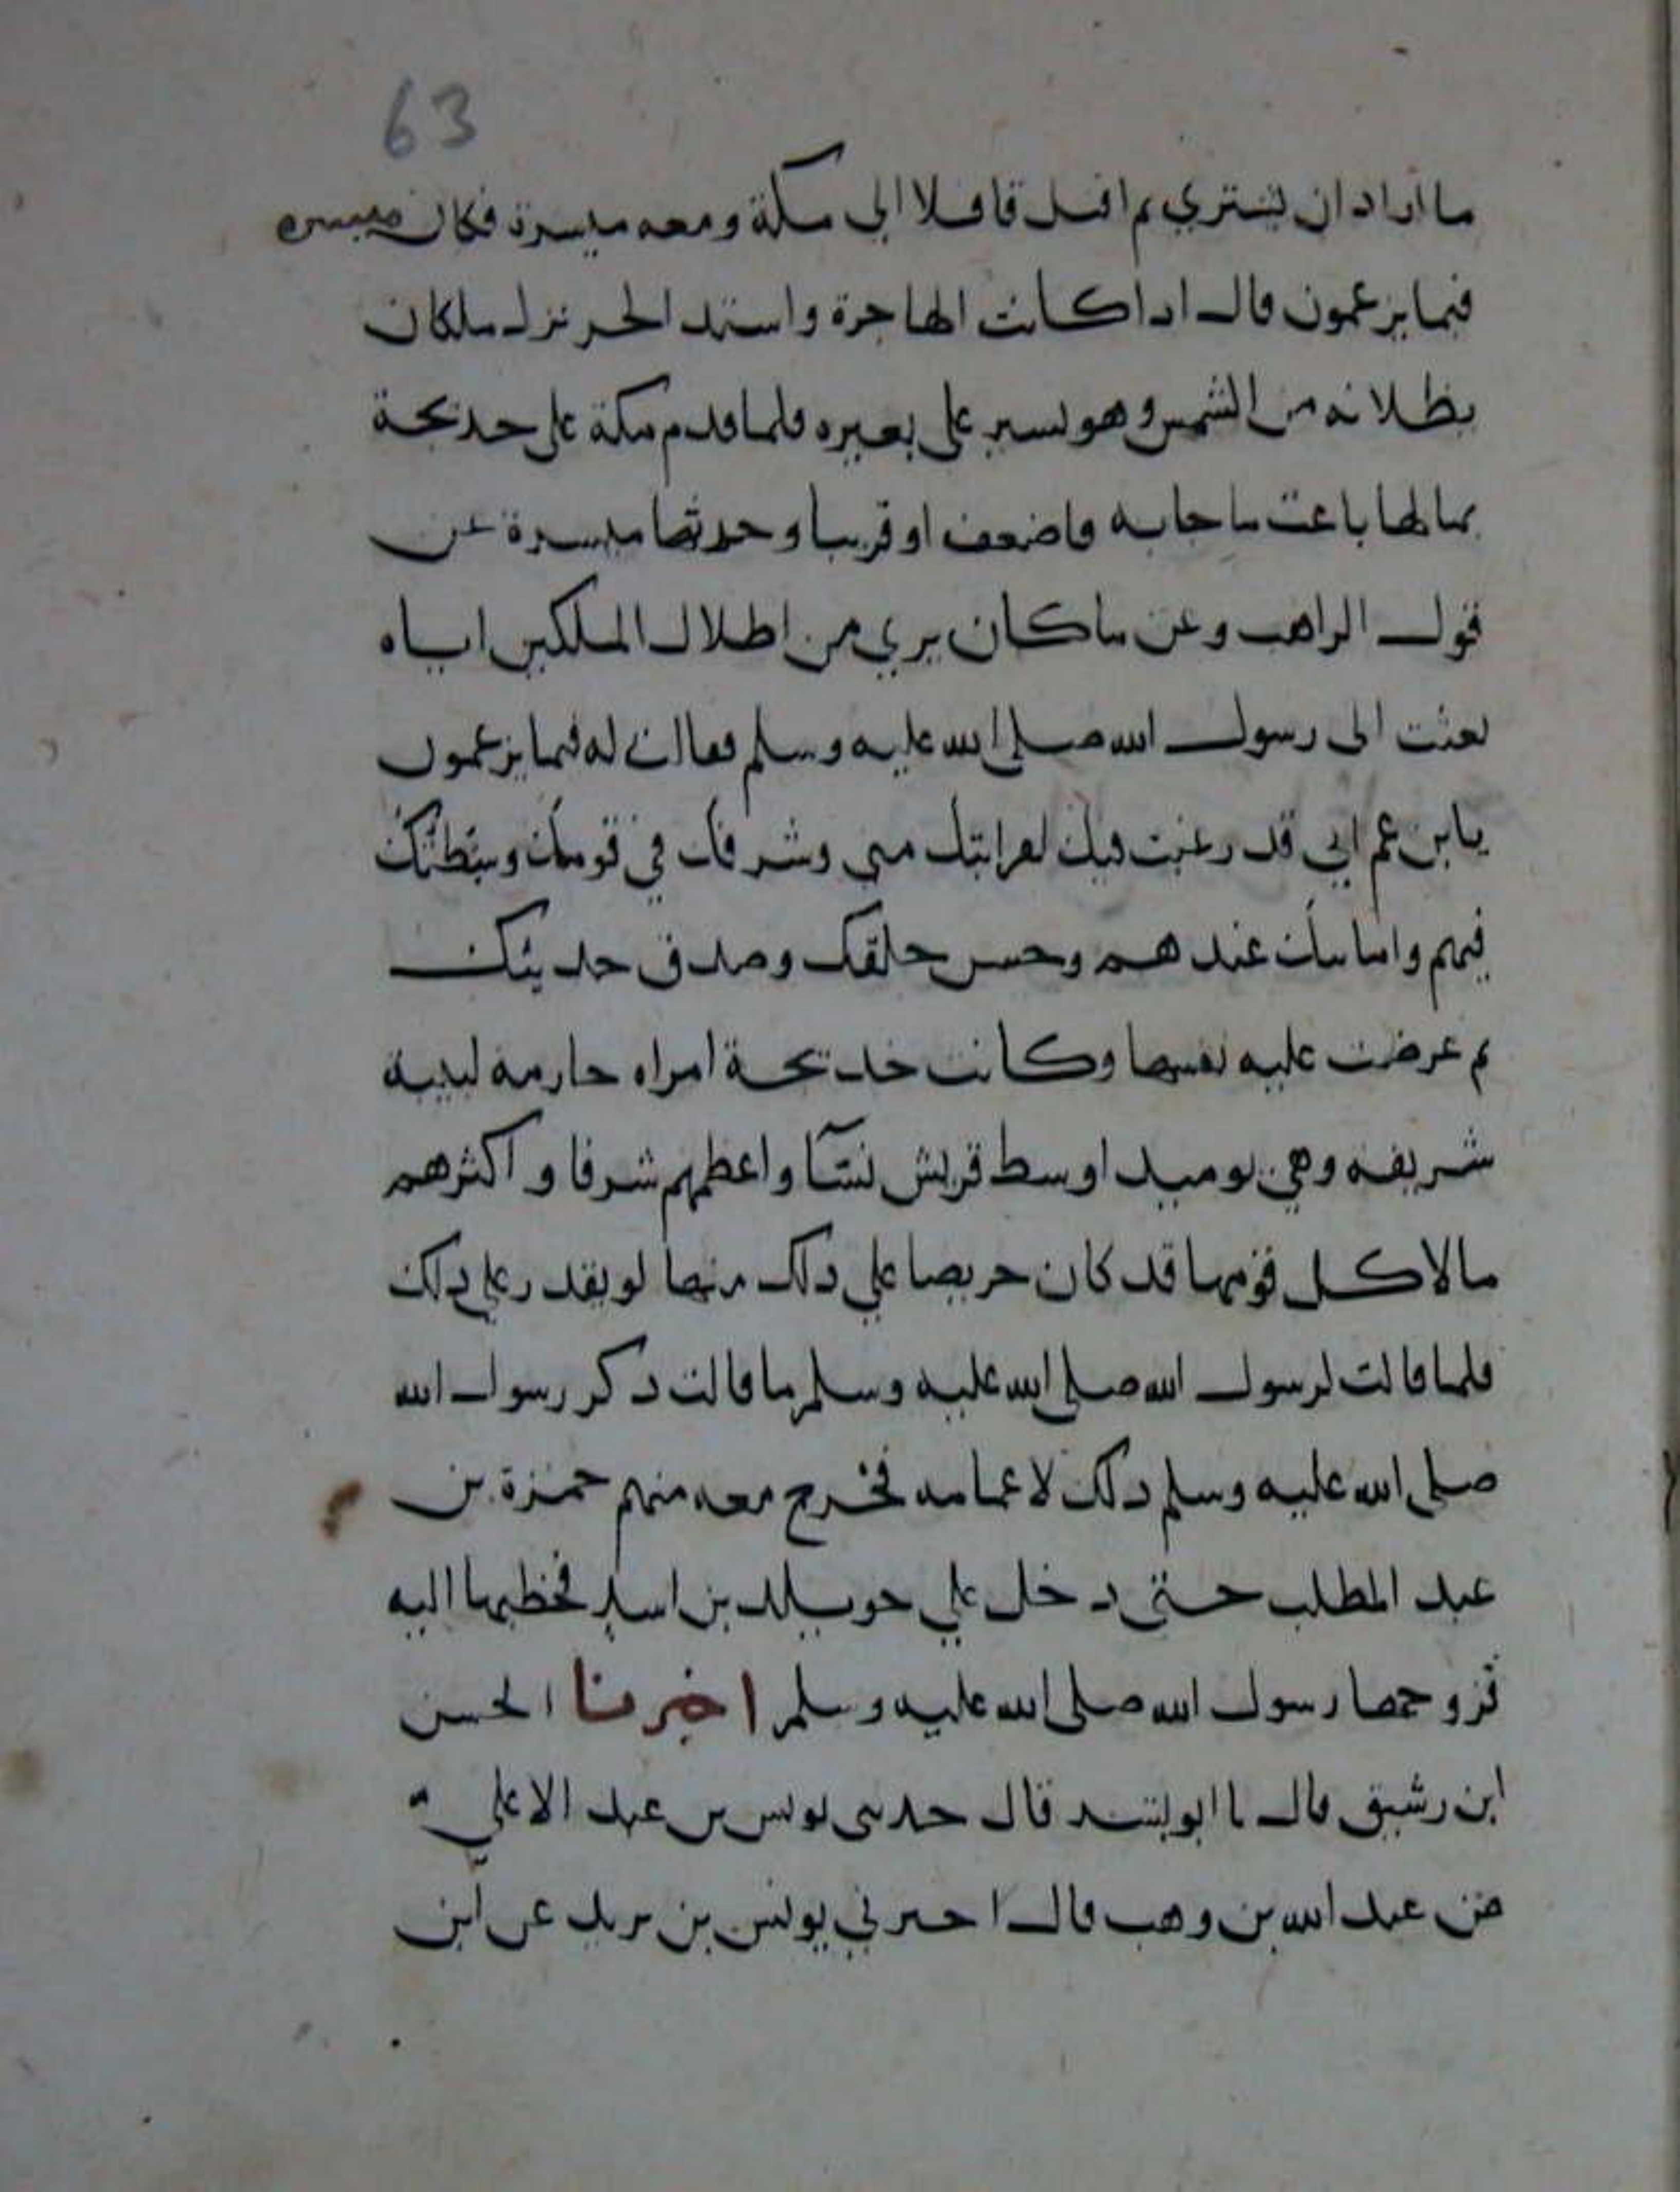 63
ما اراد ان يشتري ثم اقبل قافلا الى مكة ومعه ميسرة فكان ميسره
فيما يزعمون قال اذا كانت الهاجرة واشتد الحر نزل ملكان
يظلانه من الشمس وهو يسير على بعيره فلما قدم مكة على خديجة
بمالها باعت ما جا به فاضعف او قريبا وحدثها ميسرة عن
قول الراهب وعن ما كان يرى من اظلال الملكين اياه
بعثت الى رسول الله صلى الله عليه وسلم فقالت له فيما يزعمون
يا بن عم اني قد رغبت فيك لقرابتك مني وشرفك في قومك وسطتك
فيهم وامانتك عندهم وحسن خلقك وصدق حديثك
ثم عرضت عليه نفسها وكانت خديجة امراه حازمة لبيبة
شريفة وهي يوميذ اوسط قريش نسبا واعظمهم شرفا واكثرهم
مالا كل قومها قد كان حريصا على ذلك منها لو يقدر على ذلك
فلما قالت لرسول الله صلى الله عليه وسلم ما قالت ذكر رسول الله
صلى الله عليه وسلم ذلك لاعمامه فخرج معه منهم حمزة بن
عبد المطلب حتى دخل على خويلد بن اسد فخطبها اليه
فزوجها رسول الله صلى الله عليه وسلم اخبرنا الحسن
ابن رشيق قال نا ابو بشر قال حدثني يونس بن عبد الاعلى
عن عبد الله بن وهب قال اخبرني يونس بن يزيد عن ابن